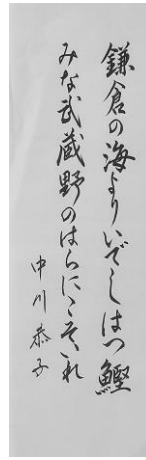 鎌倉の海よりいでしはつ鰹
みな武蔵野のはらにこそいれ
中川恭子